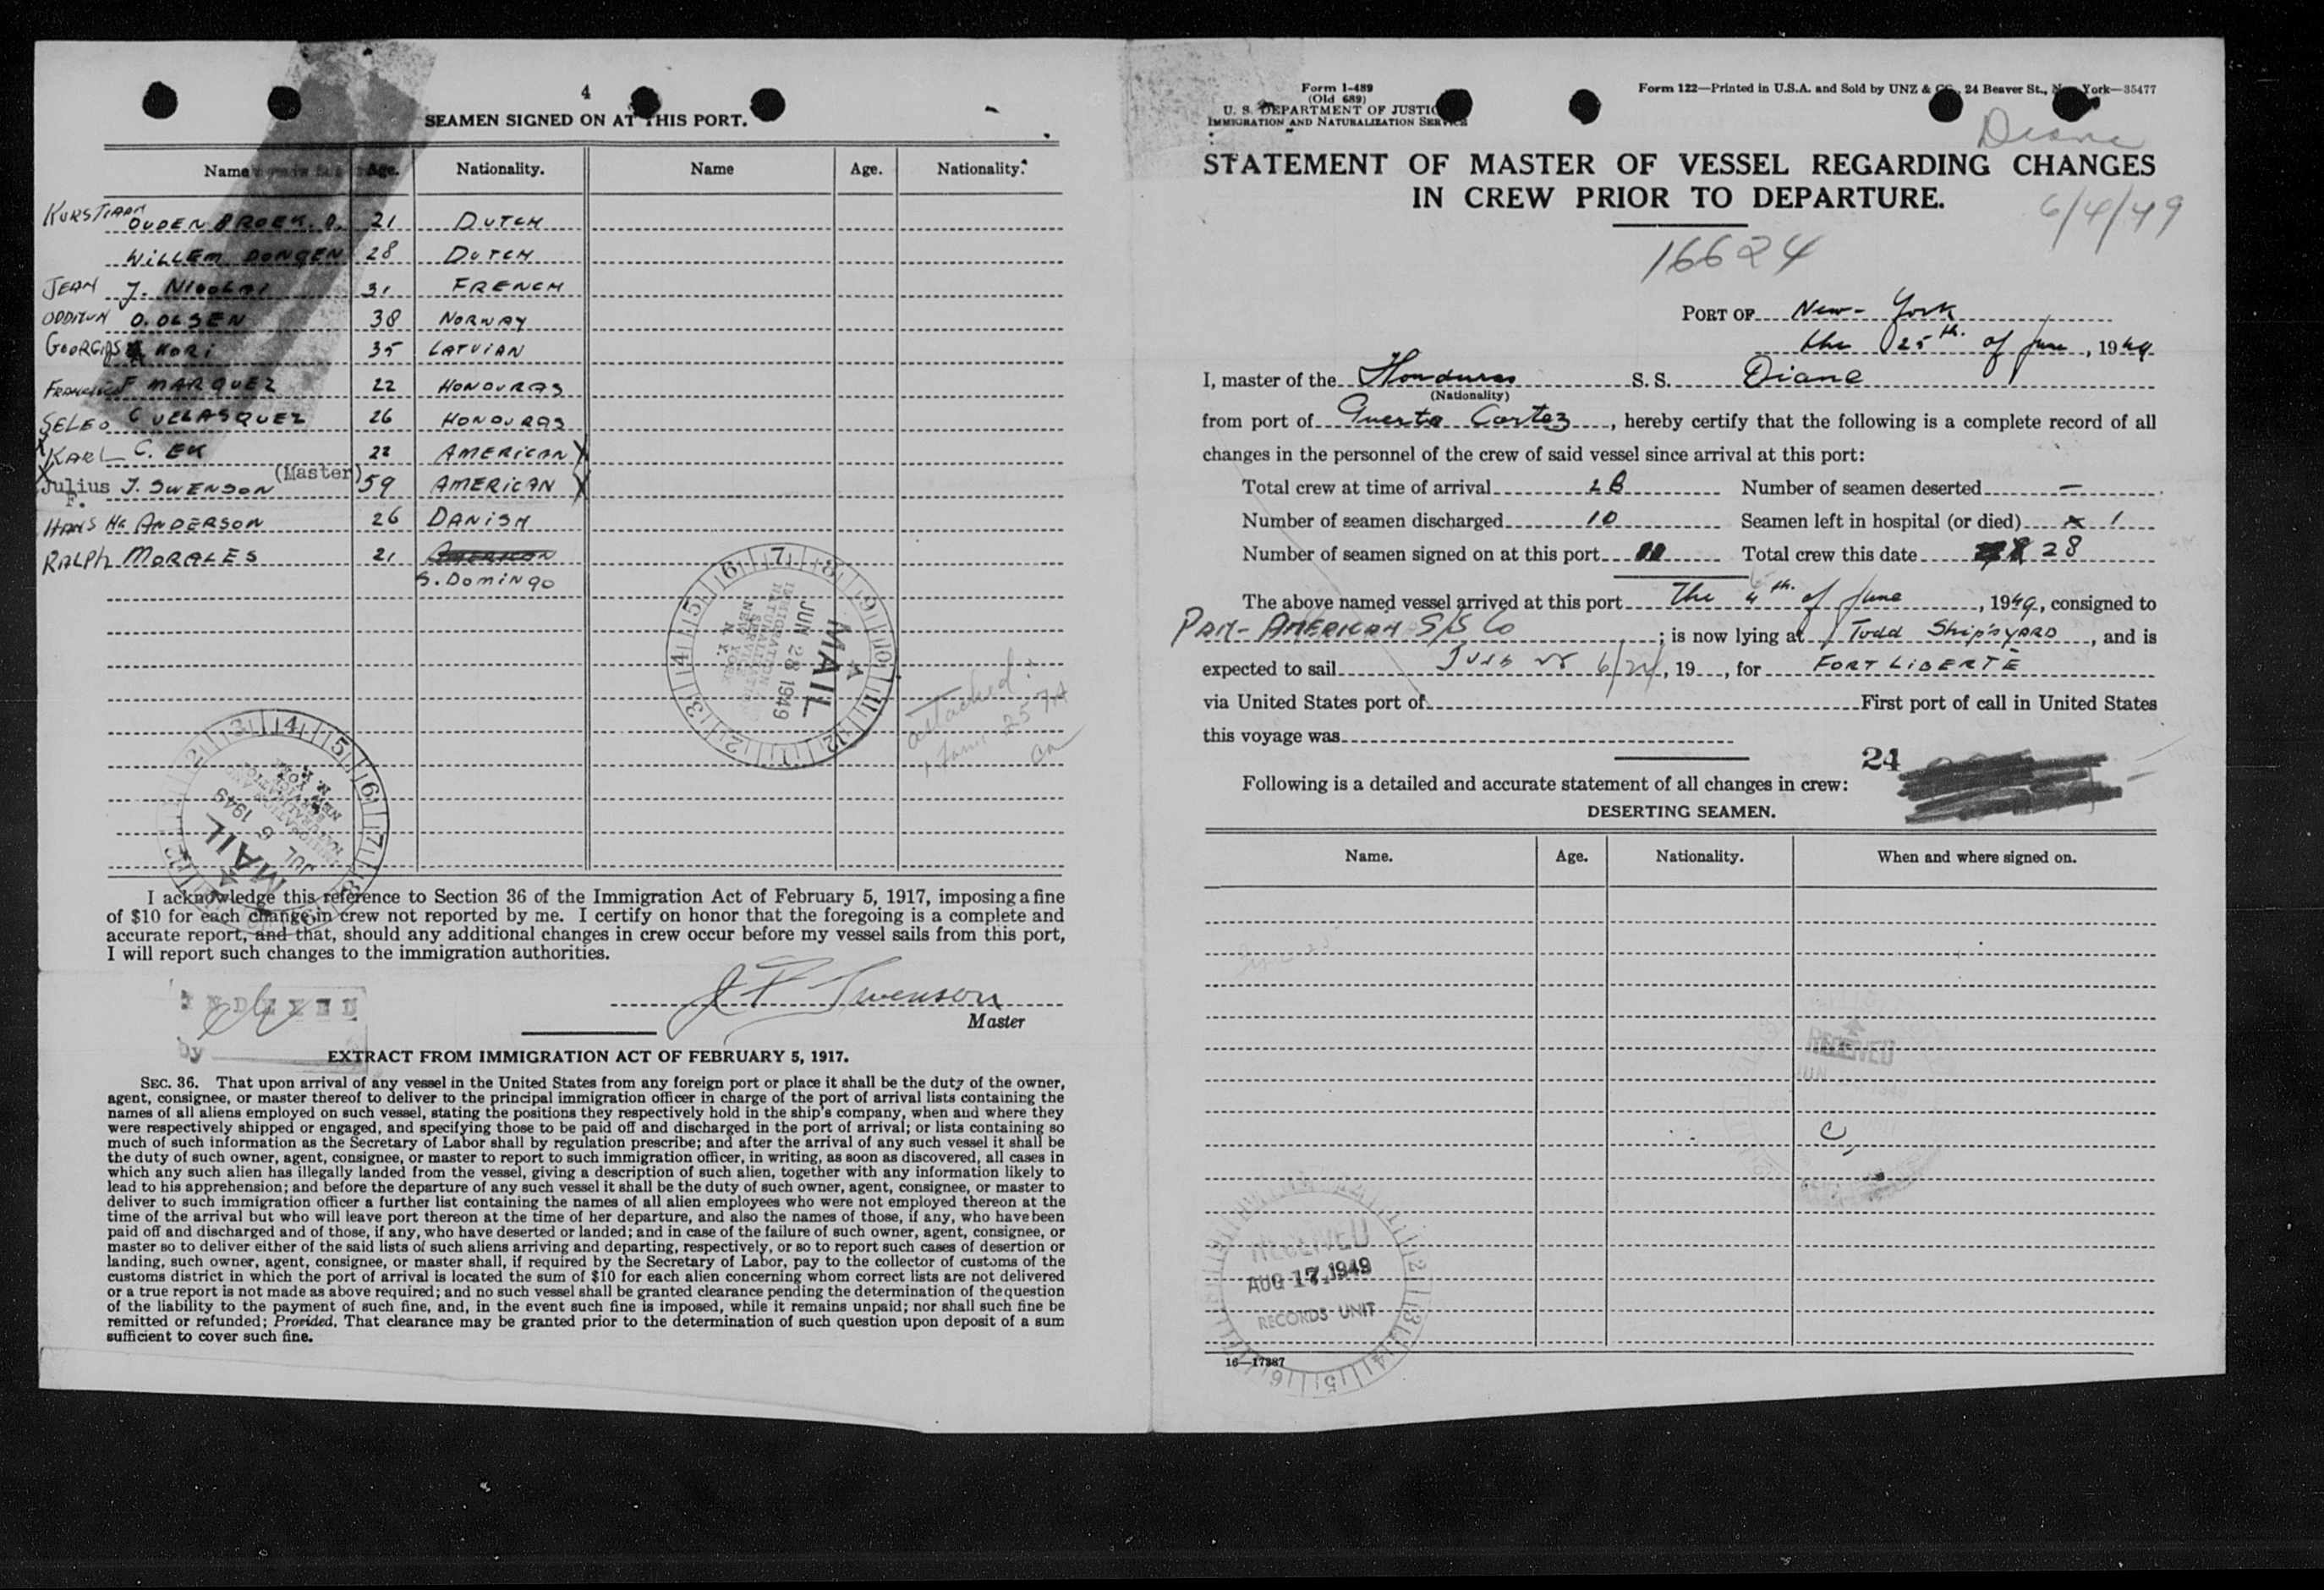 4
SEAMEN SIGNED ON AT THIS PORT.
Name Age. Nationality. Name Age. Nationality.
OUDEN BROEK. D. 21 DUTCH
WILLEM DONGEN 28 DUTCH
JEAN J. NICOLAI 31 FRENCH
O. OLSEN 38 NORWAY
KORI 35 LATVIAN
F MARQUEZ 22 HONDURAS
SELEO C VELASQUEZ 26 HONDURAS
X KARL C. EK 22 AMERICAN X
X Julius F. J. SWENSON (Master) 59 AMERICAN X
HANS Hc ANDERSON 26 DANISH
RALPH MORALES 21 AMERICAN
S. DOMINGO
MAIL
JUN 28 1949
IMMIGRATION AND NATURALIZATION SERVICE
NEW YORK N. Y.
attached
MAIL
JUL 5 1949
NEW YORK
I acknowledge this reference to Section 36 of the Immigration Act of February 5, 1917, imposing a fine
of $10 for each change in crew not reported by me. I certify on honor that the foregoing is a complete and
accurate report, and that, should any additional changes in crew occur before my vessel sails from this port,
I will report such changes to the immigration authorities.
J F Swenson
Master
INDEXED
by
EXTRACT FROM IMMIGRATION ACT OF FEBRUARY 5, 1917.
SEC. 36. That upon arrival of any vessel in the United States from any foreign port or place it shall be the duty of the owner,
agent, consignee, or master thereof to deliver to the principal immigration officer in charge of the port of arrival lists containing the
names of all aliens employed on such vessel, stating the positions they respectively hold in the ship's company, when and where they
were respectively shipped or engaged, and specifying those to be paid off and discharged in the port of arrival; or lists containing so
much of such information as the Secretary of Labor shall by regulation prescribe; and after the arrival of any such vessel it shall be
the duty of such owner, agent, consignee, or master to report to such immigration officer, in writing, as soon as discovered, all cases in
which any such alien has illegally landed from the vessel, giving a description of such alien, together with any information likely to
lead to his apprehension; and before the departure of any such vessel it shall be the duty of such owner, agent, consignee, or master to
deliver to such immigration officer a further list containing the names of all alien employees who were not employed thereon at the
time of the arrival but who will leave port thereon at the time of her departure, and also the names of those, if any, who have been
paid off and discharged and of those, if any, who have deserted or landed; and in case of the failure of such owner, agent, consignee, or
master so to deliver either of the said lists of such aliens arriving and departing, respectively, or so to report such cases of desertion or
landing, such owner, agent, consignee, or master shall, if required by the Secretary of Labor, pay to the collector of customs of the
customs district in which the port of arrival is located the sum of $10 for each alien concerning whom correct lists are not delivered
or a true report is not made as above required; and no such vessel shall be granted clearance pending the determination of the question
of the liability to the payment of such fine, and, in the event such fine is imposed, while it remains unpaid; nor shall such fine be
remitted or refunded; Provided, That clearance may be granted prior to the determination of such question upon deposit of a sum
sufficient to cover such fine.
Form I-489
(Old 689)
U. S. DEPARTMENT OF JUSTICE
IMMIGRATION AND NATURALIZATION SERVICE
Form 122—Printed in U.S.A. and Sold by UNZ & CO., 24 Beaver St., New York—35477
Diane
STATEMENT OF MASTER OF VESSEL REGARDING CHANGES
IN CREW PRIOR TO DEPARTURE.
6/4/49
16624
PORT OF New-York
the 25th. of June, 1949
I, master of the Honduras S. S. Diane
(Nationality)
from port of Puerto Cortez, hereby certify that the following is a complete record of all
changes in the personnel of the crew of said vessel since arrival at this port:
Total crew at time of arrival 28 Number of seamen deserted —
Number of seamen discharged 10 Seamen left in hospital (or died) 1
Number of seamen signed on at this port 11 Total crew this date 28
The above named vessel arrived at this port The 4th. of June, 1949, consigned to
PAN-AMERICAN S/S Co; is now lying at Todd Ship'syARD, and is
expected to sail 6/24, 19 , for FORT LIBERTÉ
via United States port of First port of call in United States
this voyage was
24
Following is a detailed and accurate statement of all changes in crew:
DESERTING SEAMEN.
Name. Age. Nationality. When and where signed on.
RECEIVED
RECEIVED
AUG 17 1949
RECORDS UNIT
16—17287